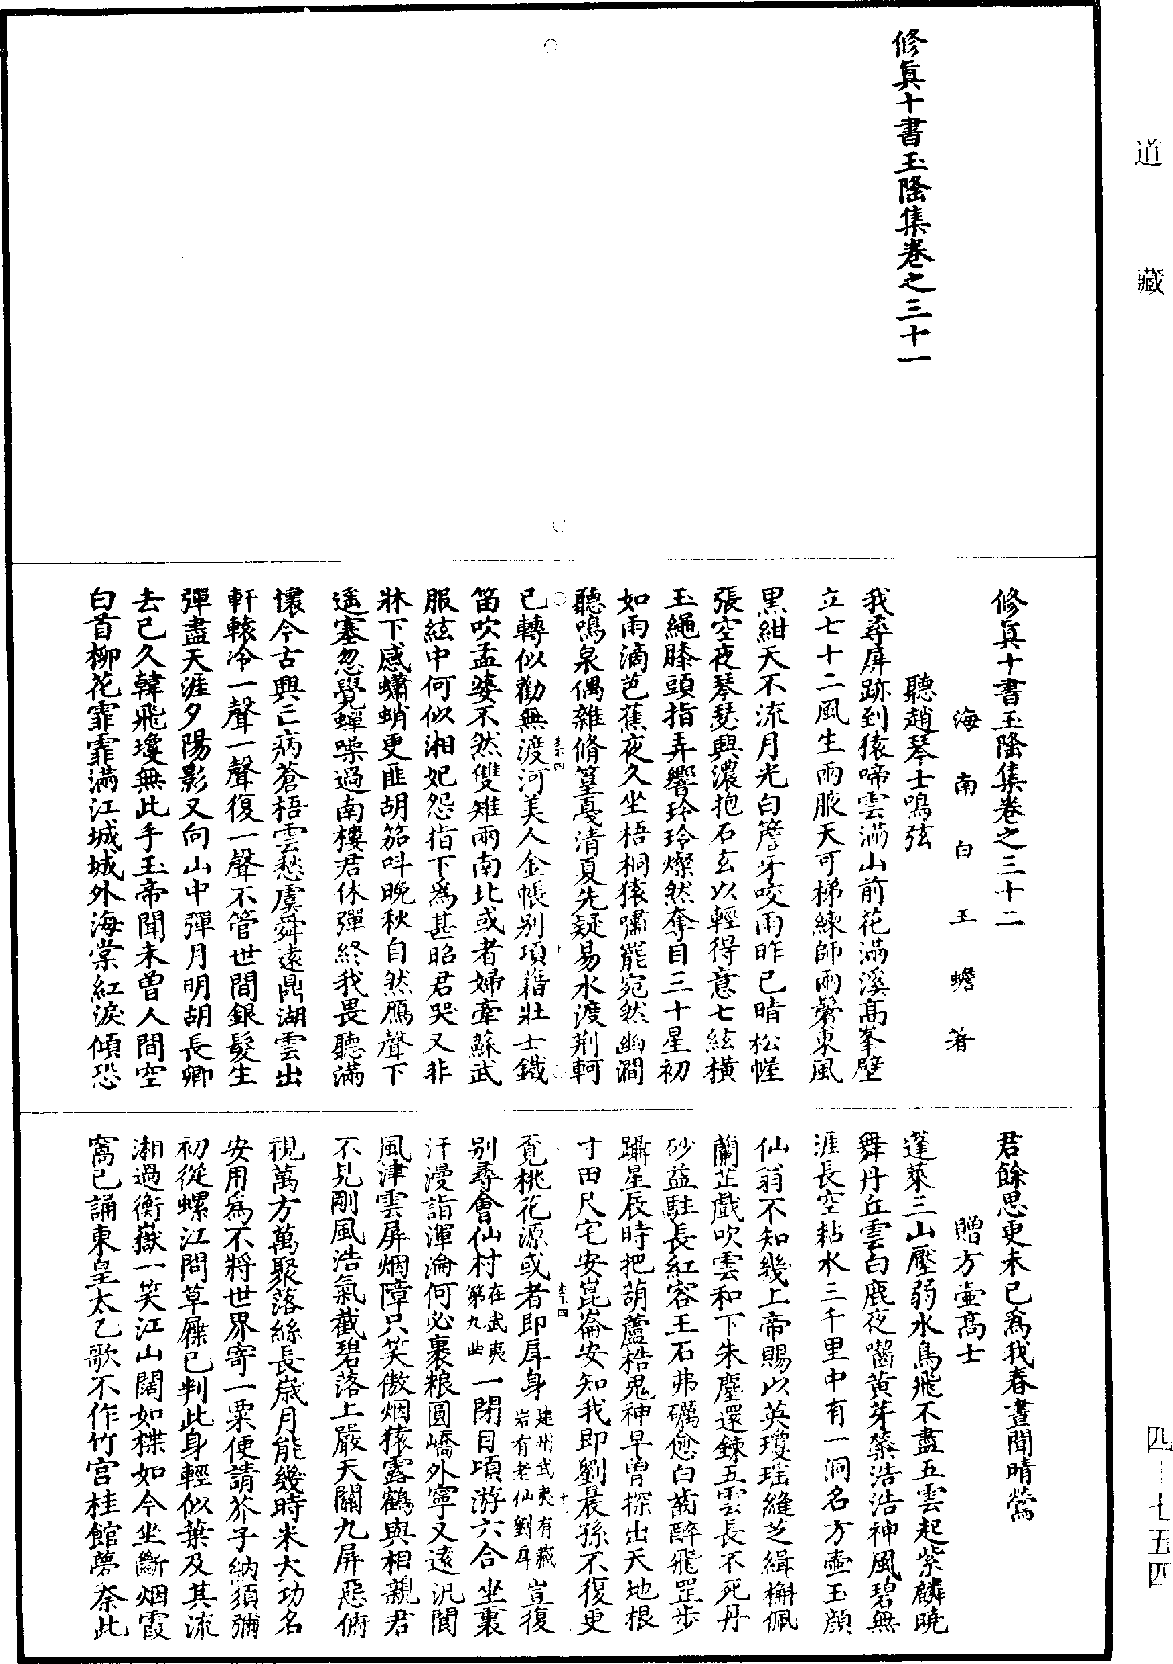 道藏
修眞十書玉隆集卷之三十一
修眞十書玉隆集卷之三十二
海南白玉蟾著
聽趙琴士鳴弦
我尋屏跡到猿啼雲滿山前花滿溪高峯壁
立七十二風生兩腋天可梯練師兩鬢東風
黑紺天不流月光白簷牙咬雨昨已晴松幄
張空夜琴瑟興濃抱石玄以輕得意七絃橫
玉繩膝頭指弄響玲玲燦然奪目三十星初
如雨滴芭蕉夜久坐梧桐猿嘯罷宛然幽澗
聽鳴泉偶雜脩篁戞清夏先疑易水渡荆軻
已轉似勸無渡河美人金帳别項籍壯士鐵
笛吹孟婆不然雙雉兩南北或者婦牽蘇武
服絃中何似湘妃怨指下爲甚昭君哭又非
牀下感蠨蛸更匪胡笳呌晚秋自然鴈聲下
遥塞忽覺蟬噪過南樓君休彈終我畏聽滿
懷今古興亡病蒼梧雲愁虞舜遠鼎湖雲出
軒轅冷一聲一聲復一聲不管世間銀髮生
彈盡天涯夕陽影又向山中彈月明胡長卿
去已久韓飛瓊無此手玉帝聞未曾人間空
白首柳花霏霏滿江城城外海棠紅淚傾恐
君餘思更未已爲我春晝聞晴鶯
贈方壷高士
蓬萊三山壓弱水鳥飛不盡五雲起紫麟曉
舞丹丘雲白鹿夜囓黄芽蘂浩浩神風碧無
涯長空粘水三千里中有一洞名方壷玉顔
仙翁不知幾上帝賜以英瓊瑶縫芝緝槲佩
蘭芷戲吹雲和下朱塵還錬五雲長不死丹
砂益駐長紅容王石弗礪愈白齒醉飛罡步
躡星辰時把葫蘆梏鬼神早曾探出天地根
寸田尺宅安崑崙安知我即劉晨孫不復更
覓桃花源或者即屏身建州武夷有藏岩有老仙劉屏豈復
别尋會仙村在武夷第九曲一閉目頃游六合坐裹
汗漫詣渾淪何必裹粮圓嶠外寧又遠汎閬
風津雲屏烟障只笑傲烟猿露鶴與相親君
不見剛風浩氣截碧落上嚴天關九屏惡俯
視萬方萬聚落絲長歲月能幾時米大功名
安用爲不將世界寄一粟便請芥子納須彌
初從螺江問草屩已判此身輕似葉及其流
湘過衡嶽一笑江山闊如楪如今坐斷烟霞
窩已誦東皇太乙歌不作竹宫桂館夢奈此
四一七五四